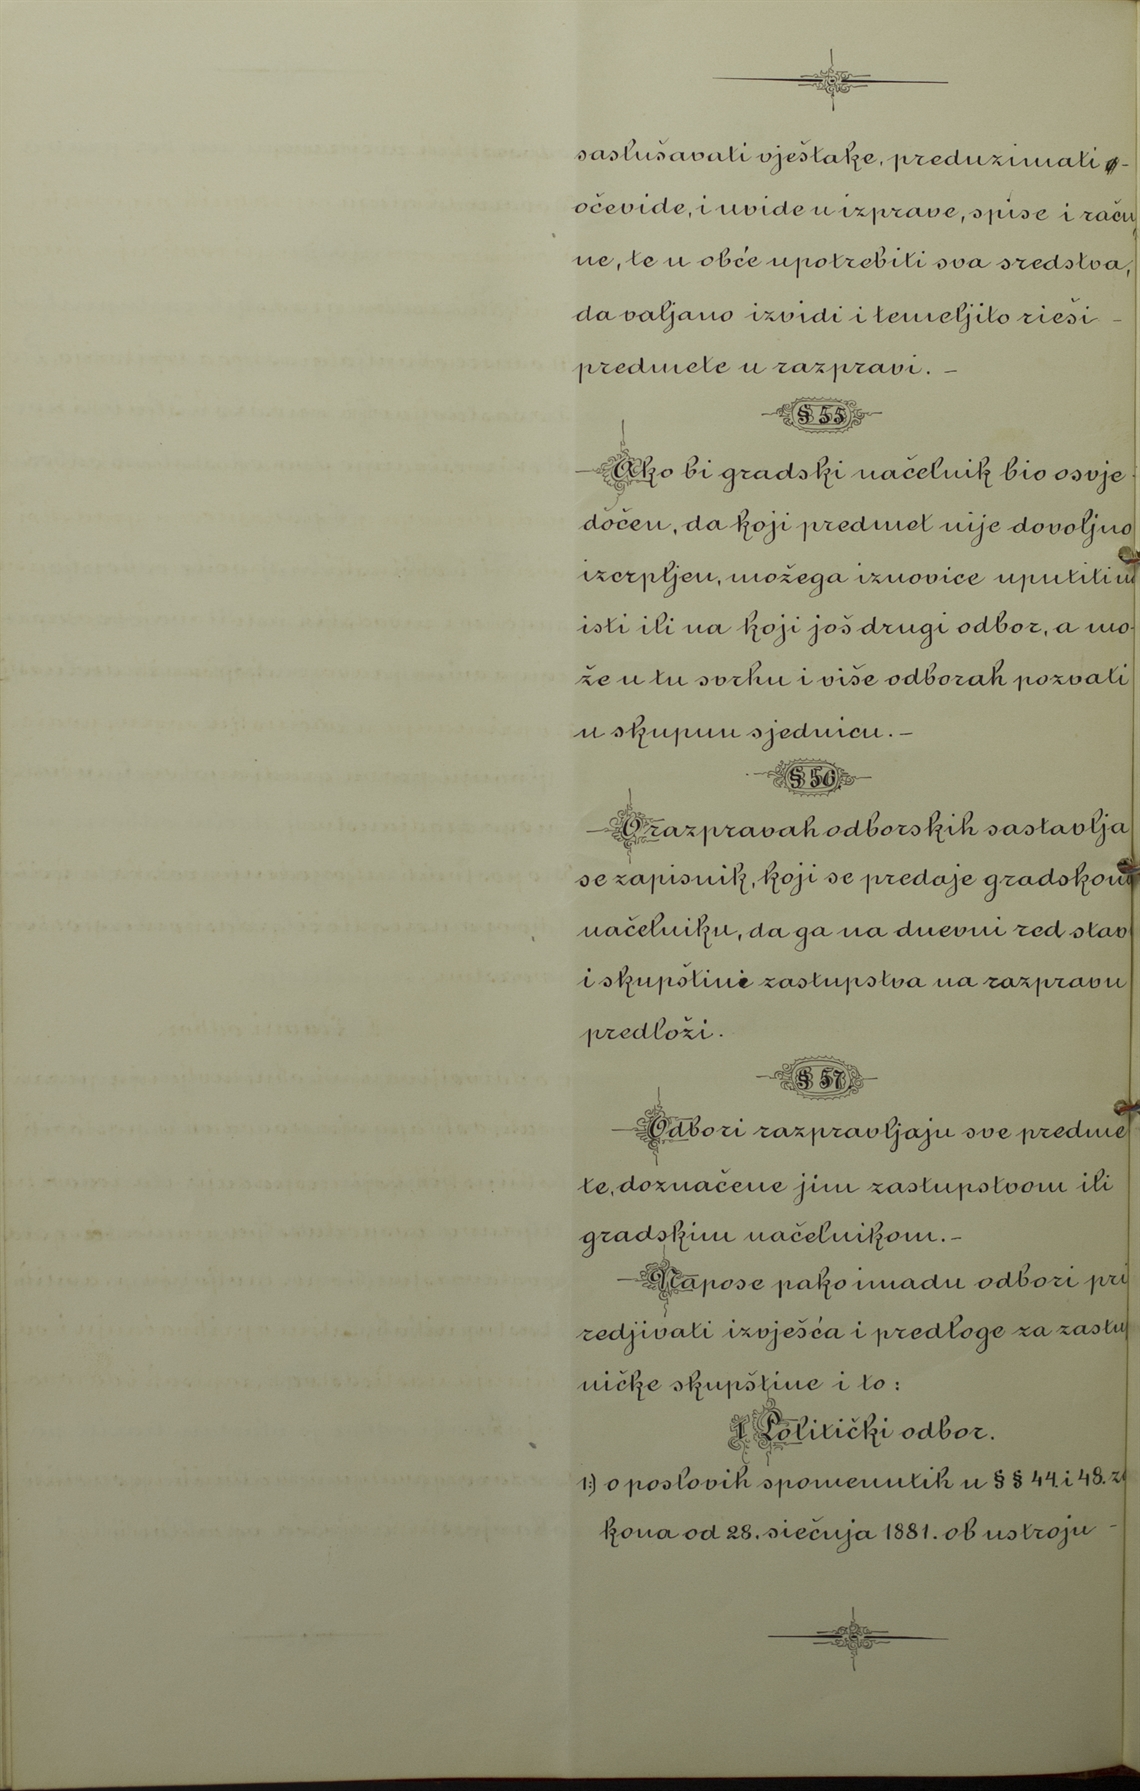 saslušavati vještake, preduzimati
očevide, i uvide u izprave, spise i raču
ne, te u obće upotrebiti sva sredstva,
da valjano izvidi i temeljito rieši -
predmete u razpravi. -
§ 55
Ako bi gradski načelnik bio osvje
dočen, da koji predmet nije dovoljno
izcrpljen, možega iznovice uputiti u
isti ili na koji još drugi odbor, a mo-
že u tu svrhu i više odborah pozvati
u skupnu sjednicu. -
§ 56.
O razpravah odborskih sastavlja
se zapisnik, koji se predaje gradskom
načelniku, da ga na dnevni red stav
i skupštini zastupstva na razpravu
predloži.
§ 57.
Odbori razpravljaju sve predme
te, doznačene jim zastupstvom ili
gradskim načelnikom. -
Napose pako imadu odbori pri
redjivati izvješća i predloge za zastu
ničke skupštine i to:
I Politički odbor.
1.) o poslovih spomenutih u § § 44. i 48. za
kona od 28. siečnja 1881. ob ustroju -